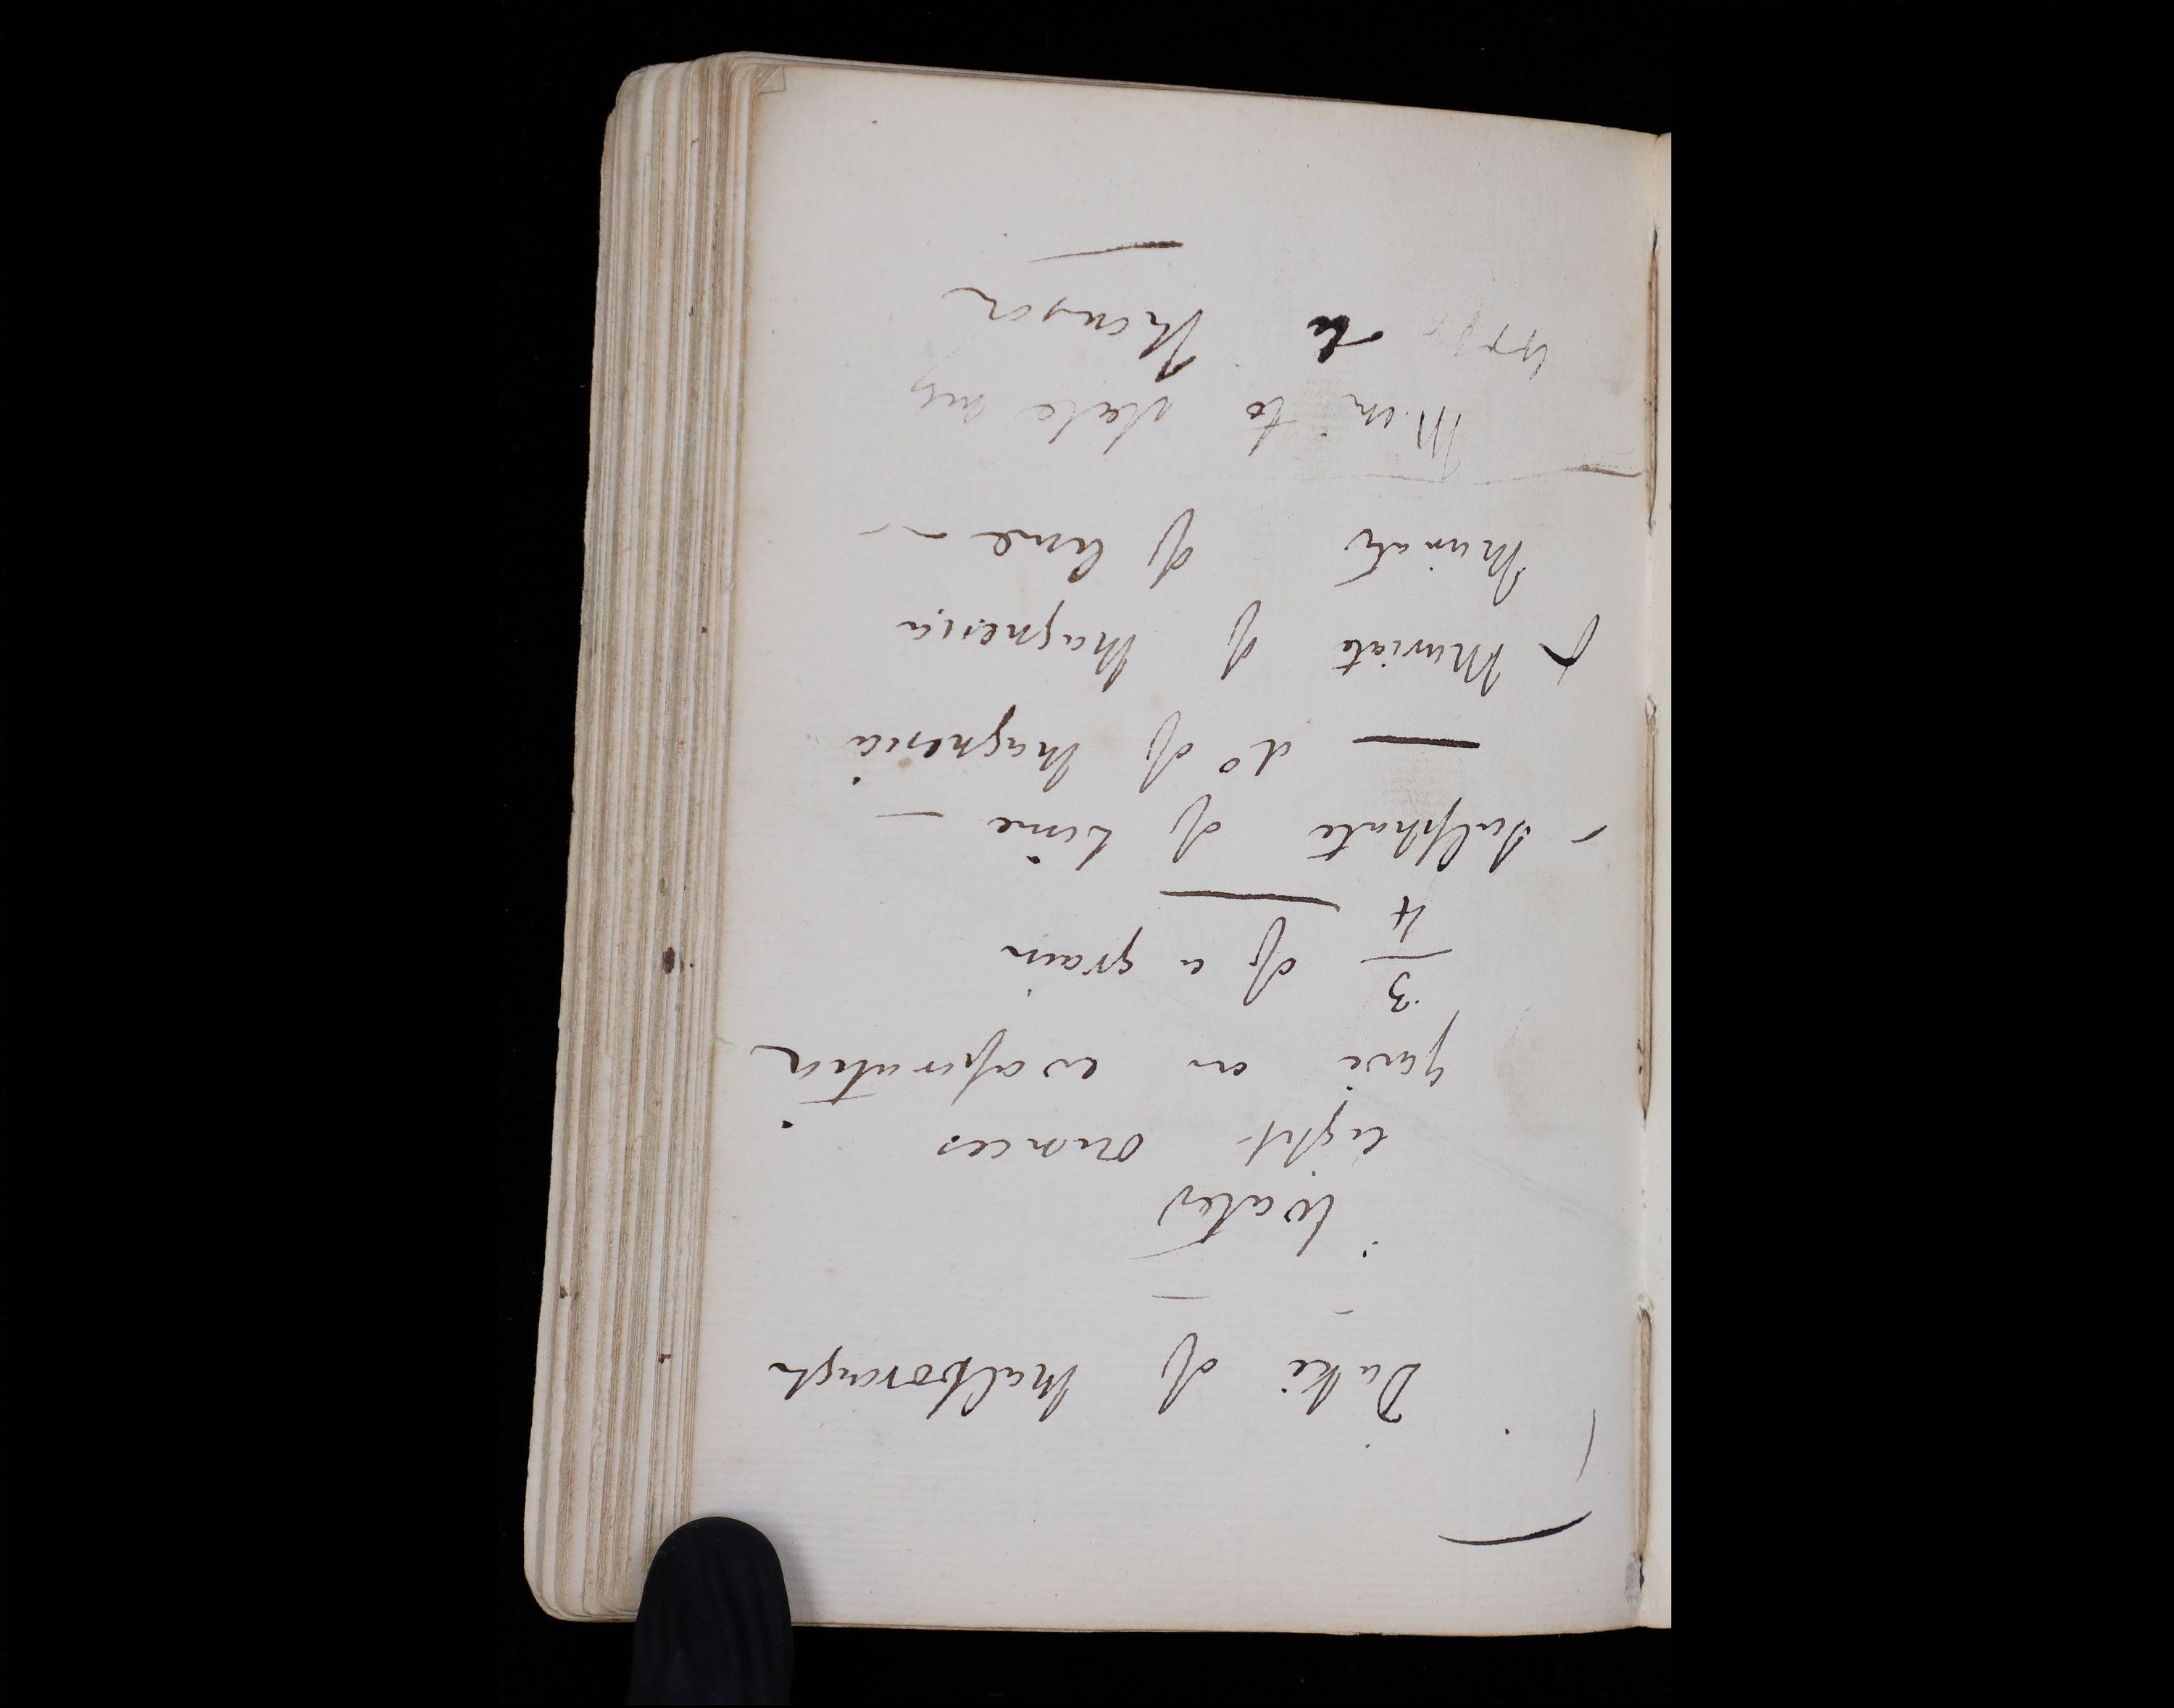 Duke of Malborough
Water
eight ounces
gave on evaporation
3/4 of a grain
- Sulphate of Lime —
— d° of Magnesia
Muriate of Magnesia
Muriate of lime ~
to state my